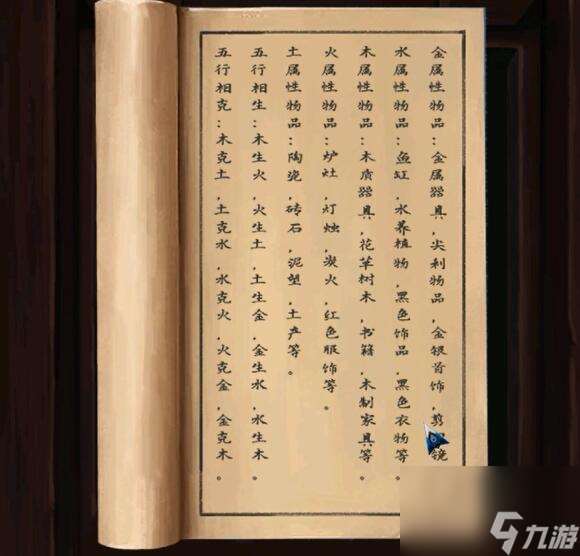 金属性物品：金属器具，尖利物品，金银首饰，剪镜
水属性物品：鱼缸，水养植物，黑色饰品，黑色衣物等
木属性物品：木质器具，花草树木，书籍，木制家具等。
火属性物品：炉灶，灯烛，炭火，红色服饰等。
土属性物品：陶瓷，砖石，泥塑，土产等。
五行相生：木生火，火生土，土生金，金生水，水生木。
五行相克：木克土，土克水，水克火，火克金，金克木。
九游